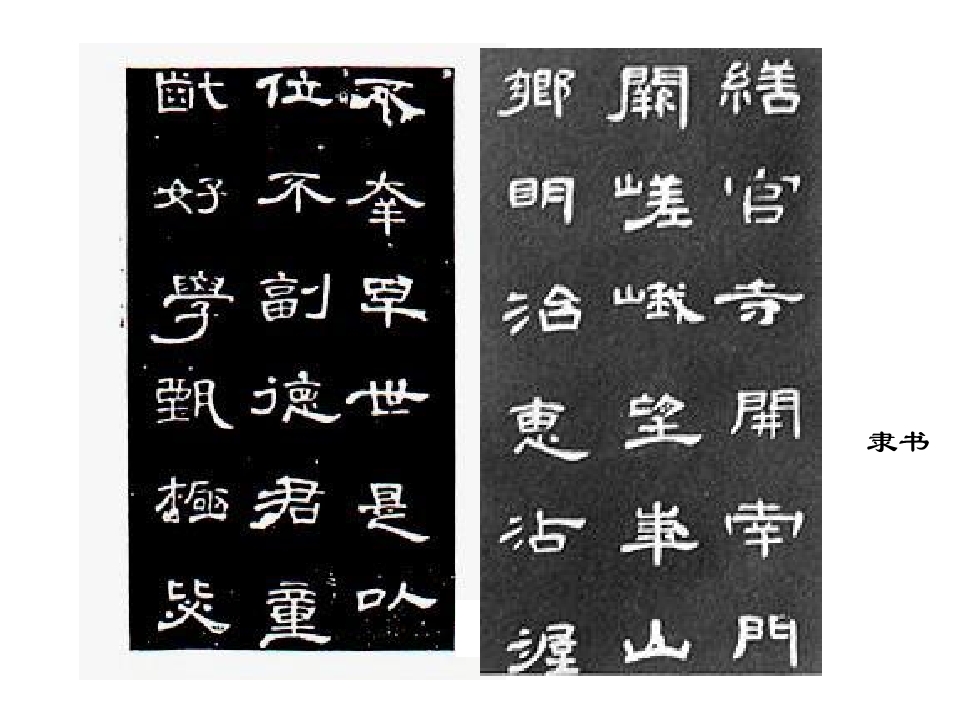 不幸早世是以
位不副德君童
齔好學甄極毖
繕官寺開南門
闕嵯峨望華山
鄉明治惠沾渥
隶书